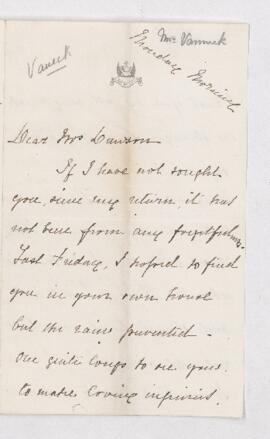 Mrs Vanneck
Vaneck
Thursday Morning
Dear Mrs Lawson
If I have not sought
you, since my return, it has
not been from any forgetfulness.
Last Friday, I hoped to find
you in your own house
but the rains prevented -
One quite longs to see you
to make loving inquiries.